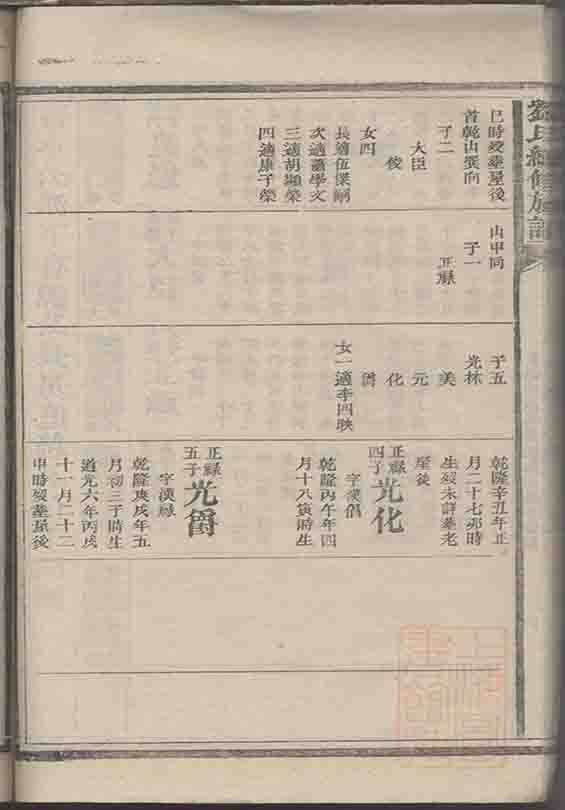 劉氏續修族譜
巳時歿葬屋後
首乾山巽向
子二
大臣
俊
女四
長適伍傑嗣
次適蕭學文
三適胡顯榮
四適康子榮
山甲向
子一
正祿
子五
光林
美
元
化
爵
女一適李四映
乾隆辛丑年正
月二十七卯時
生歿未詳葬老
屋後
正祿
四子光化
字漢倡
乾隆丙午年四
月十八寅時生
正祿
五子光爵
字漢緣
乾隆庚戌年五
月初三子時生
道光六年丙戌
十一月二十二
申時歿葬屋後